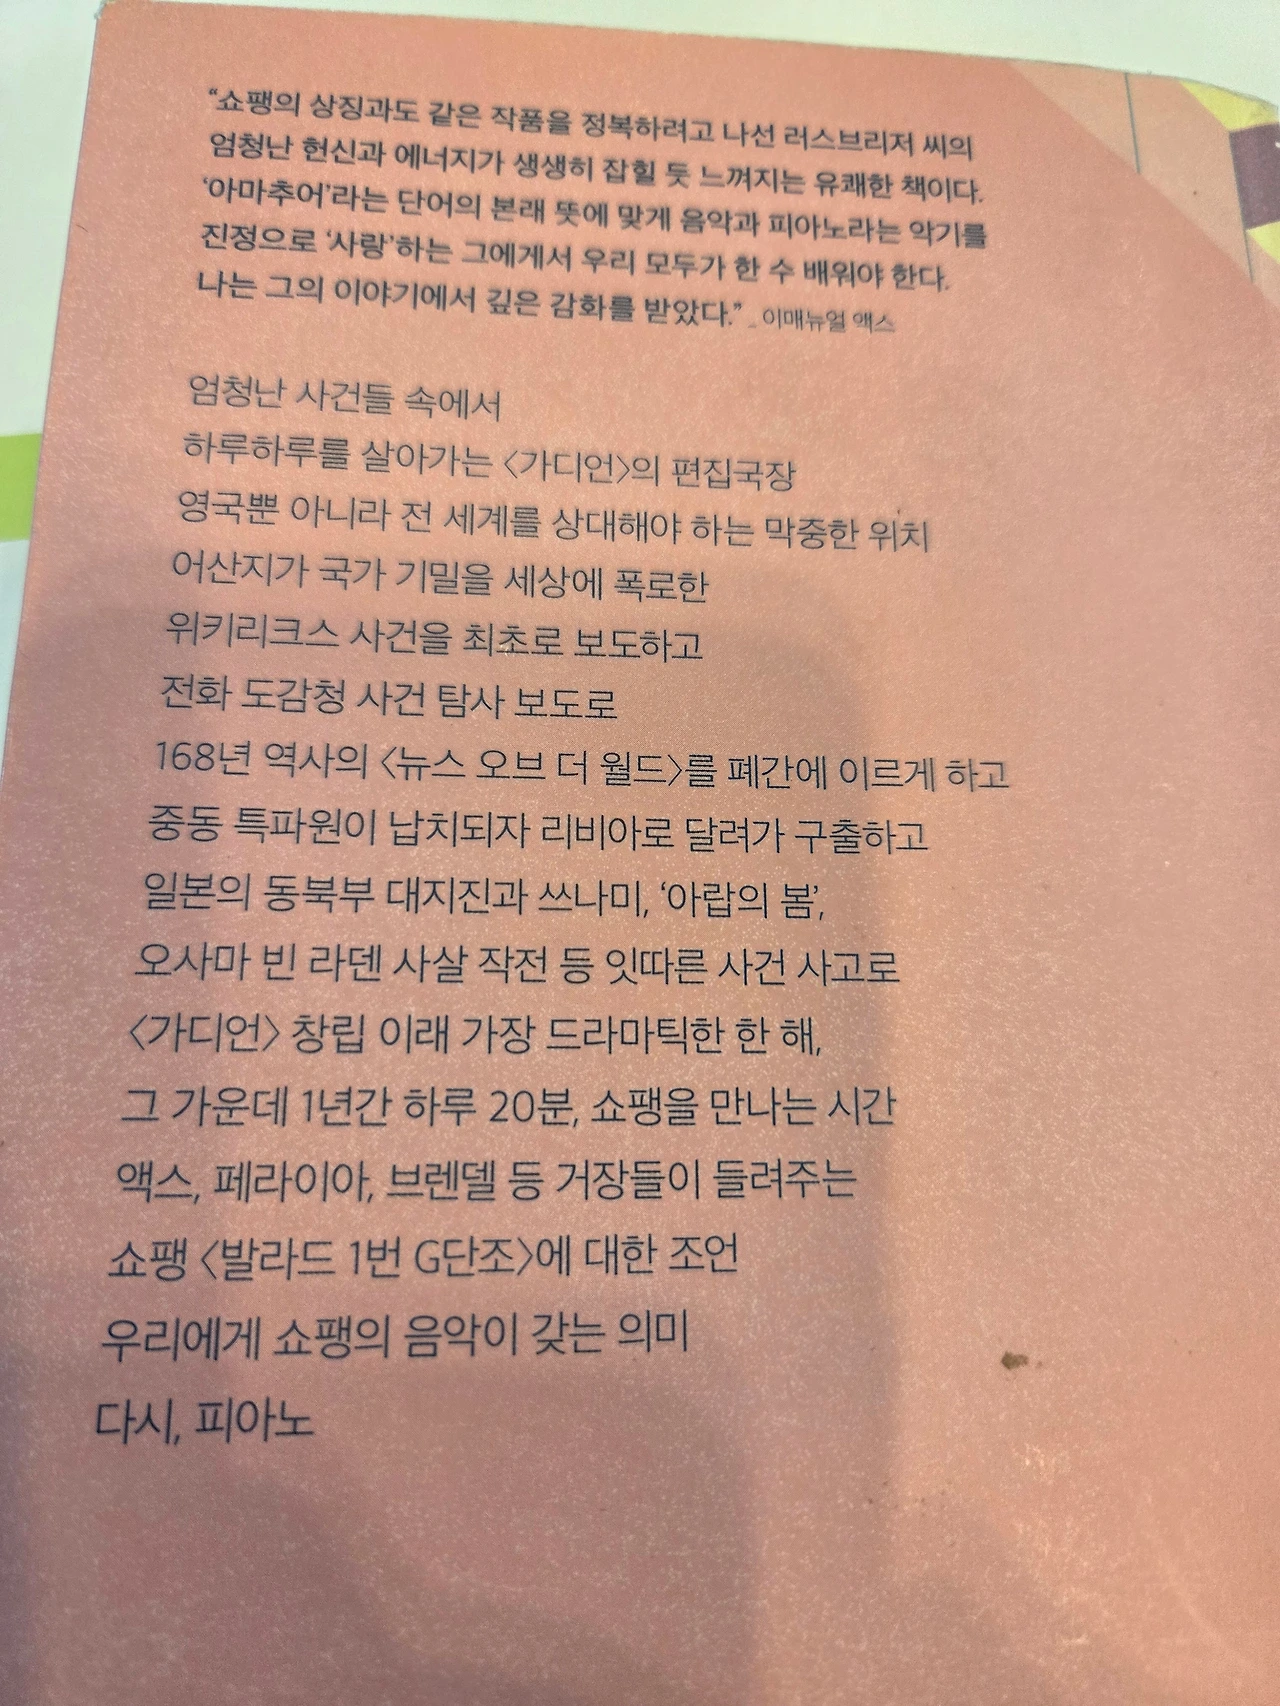 “쇼팽의 상징과도 같은 작품을 정복하려고 나선 러스브리저 씨의
엄청난 헌신과 에너지가 생생히 잡힐 듯 느껴지는 유쾌한 책이다.
‘아마추어’라는 단어의 본래 뜻에 맞게 음악과 피아노라는 악기를
진정으로 ‘사랑’하는 그에게서 우리 모두가 한 수 배워야 한다.
나는 그의 이야기에서 깊은 감화를 받았다.” _ 이매뉴얼 액스
엄청난 사건들 속에서
하루하루를 살아가는 〈가디언〉의 편집국장
영국뿐 아니라 전 세계를 상대해야 하는 막중한 위치
어산지가 국가 기밀을 세상에 폭로한
위키리크스 사건을 최초로 보도하고
전화 도감청 사건 탐사 보도로
168년 역사의 〈뉴스 오브 더 월드〉를 폐간에 이르게 하고
중동 특파원이 납치되자 리비아로 달려가 구출하고
일본의 동북부 대지진과 쓰나미, ‘아랍의 봄’,
오사마 빈 라덴 사살 작전 등 잇따른 사건 사고로
〈가디언〉 창립 이래 가장 드라마틱한 한 해,
그 가운데 1년간 하루 20분, 쇼팽을 만나는 시간
액스, 페라이아, 브렌델 등 거장들이 들려주는
쇼팽 〈발라드 1번 G단조〉에 대한 조언
우리에게 쇼팽의 음악이 갖는 의미
다시, 피아노